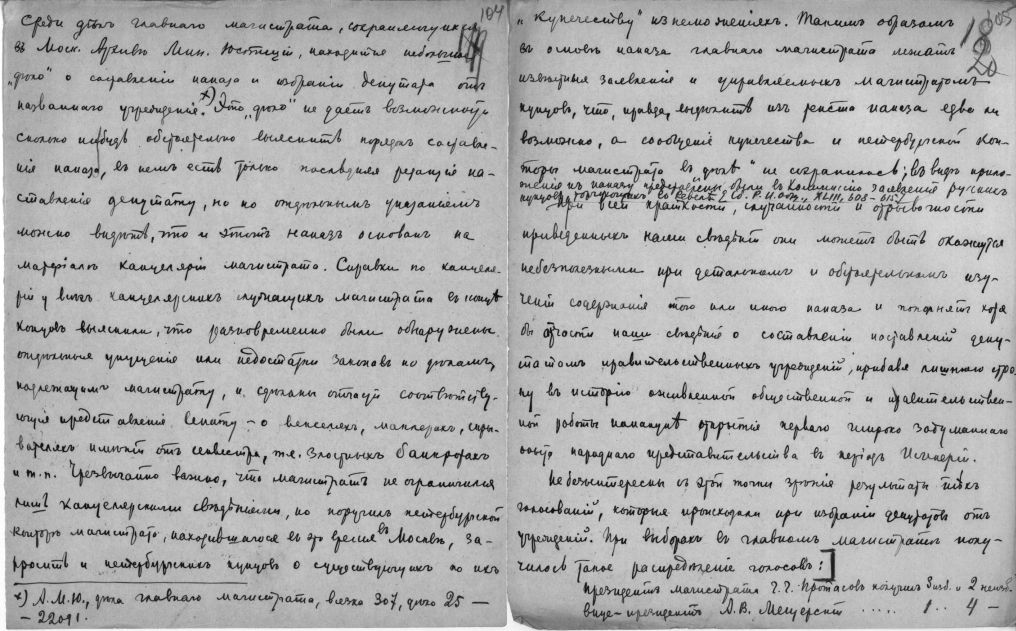 104
Среди дѣлъ главнаго магистрата, сохраняющихся
въ Моск. Архивѣ Мин. Юстиціи, находится небольшое
„дѣло" о составленіи наказа и избраніи депутата отъ
названнаго учрежденія. х) Это „дѣло" не даетъ возможности
сколько нибудь обстоятельно выяснить порядокъ составле-
нія наказа, въ немъ есть только послѣдняя редакція на-
ставленія депутату, но по отдѣльнымъ указаніямъ
можно видѣть, что и этотъ наказъ основанъ на
матеріалѣ канцеляріи магистрата. Справки по канцеля-
ріи у всѣхъ канцелярскихъ служащихъ магистрата въ концѣ
концовъ выяснили, что разновременно были обнаружены
отдѣльныя упущенія или недостатки законовъ по дѣламъ,
подлежащимъ магистрату, и сдѣланы отчасти соотвѣтству-
ющія представленія Сенату – о векселяхъ, маклерахъ, скры-
вателяхъ имѣній отъ секвестра, т.е. злостныхъ банкротахъ
и т.п. Чрезвычайно важно, что магистратъ не ограничился
лишь канцелярскими свѣдѣніями, но поручилъ петербургской
конторѣ магистрата, находившагося въ это время въ Москвѣ, за-
просить и петербургскихъ купцовъ о существующихъ по ихъ
х) А.М.Ю., дѣла главнаго магистрата, вязка 307, дѣло 25 –
– 22091.
105
„купечеству" изнеможеніяхъ. Такимъ образомъ
въ основѣ наказа главнаго магистрата лежатъ
извѣстныя заявленія и управляемыхъ магистратомъ
купцовъ, что, правда, выдѣлить изъ текста наказа едва ли
возможно, а сообщеніе купечества и петербургской кон-
торы магистрата въ „дѣлѣ" не сохранилось; въ видѣ прило-
женія къ наказу представлены были въ Коммиссію заявленія русскихъ
купцовъ, торгующихъ въ Ревелѣ (Сб. Р. И. Общ., XLIII, 603–615)
При всей краткости, случайности и отрывочности
приведенныхъ нами свѣдѣній они можетъ быть окажутся
небезполезными при детальномъ и обстоятельномъ изу-
ченіи содержанія того или иного наказа и пополнятъ хотя
бы отчасти наши свѣдѣнія о составленіи наставленій депу-
татамъ правительственныхъ учрежденій, прибавя лишнюю стра-
ницу въ исторію оживленной общественной и правительствен-
ной работы наканунѣ открытія перваго широко задуманнаго
народнаго представительства въ періодъ Имперіи.
Небезынтересны съ этой точки зрѣнія результаты тѣхъ
голосованій, которыя происходили при избраніи депутатовъ отъ
учрежденій. При выборахъ въ главномъ магистратѣ полу-
чилось такое распредѣленіе голосовъ:]
президентъ магистрата Протасовъ получилъ 3 изб. и 2 неизб.
вице-президентъ А.В. Мещерскій ..... 1 .. 4 –